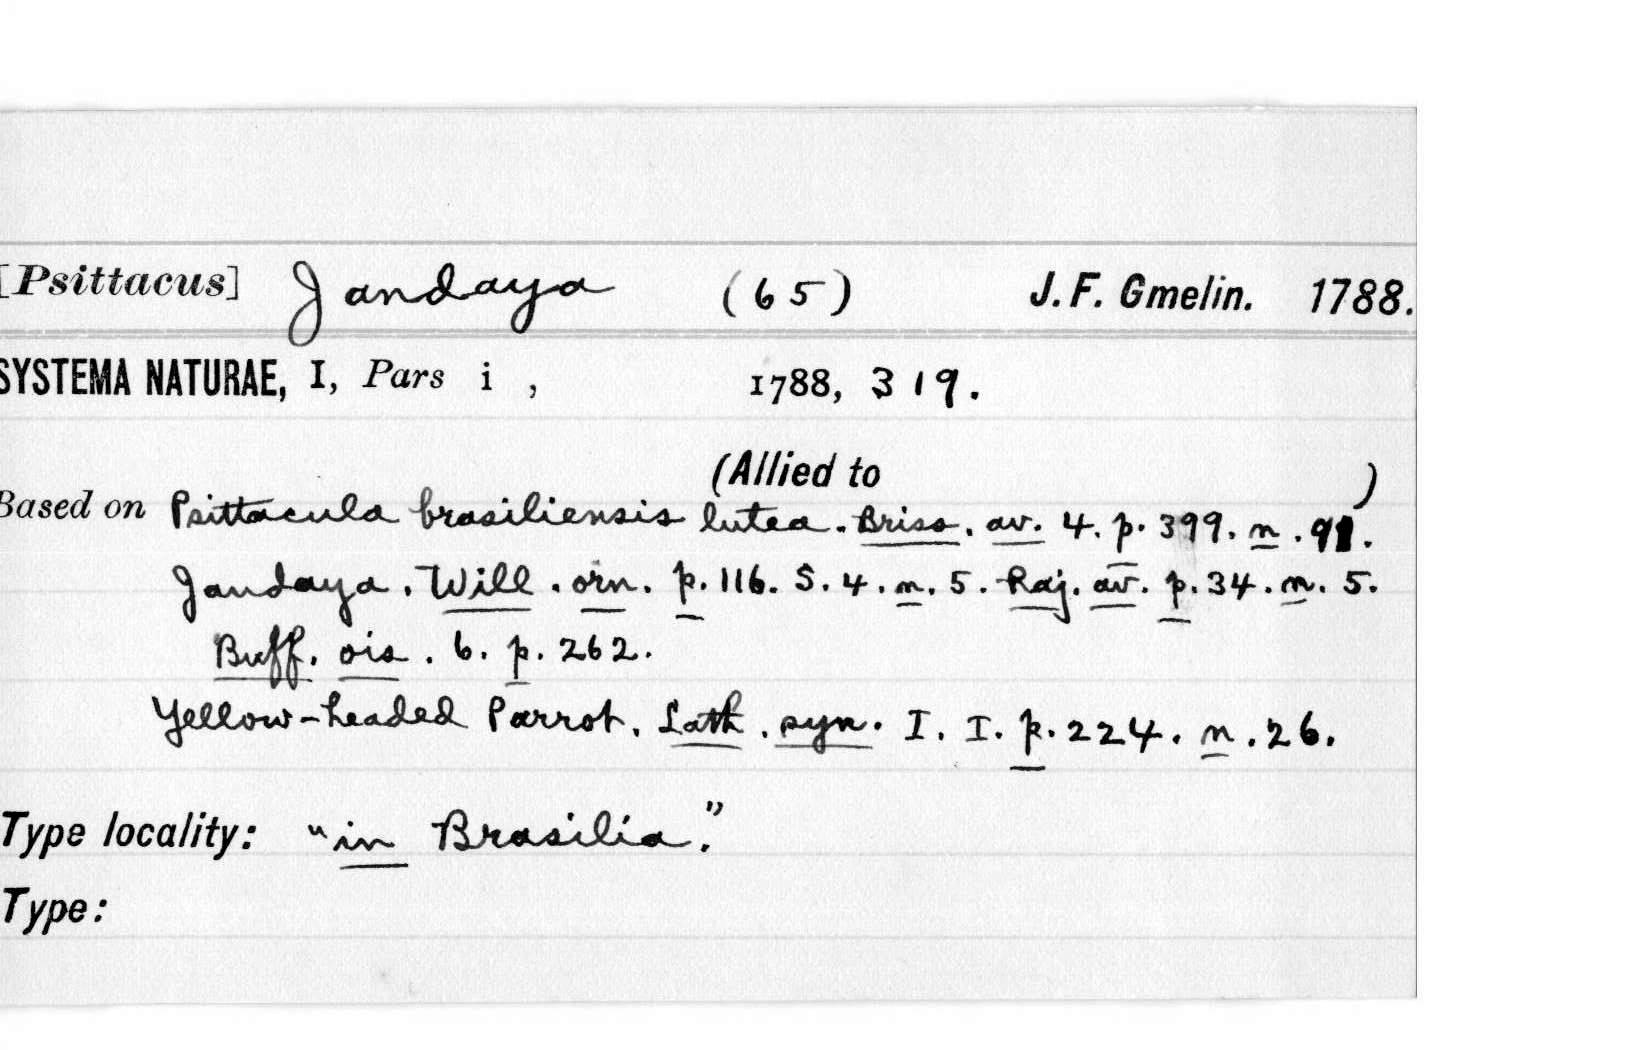 [Psittacus] Jandaya (65) J. F. Gmelin. 1788.
SYSTEMA NATURAE, I, Pars i , 1788, 319.
(Allied to )
Based on Psittacula brasiliensis lutea. Briss. av. 4. p. 399. n.
Jandaya. Will. orn. p. 116. S. 4. n. 5. Raj. av. p. 34. n. 5.
Buff. ois. 6. p. 262.
Yellow-headed Parrot. Lath. syn. I. I. p. 224. n. 26.
Type locality: "in Brasilia."
Type: